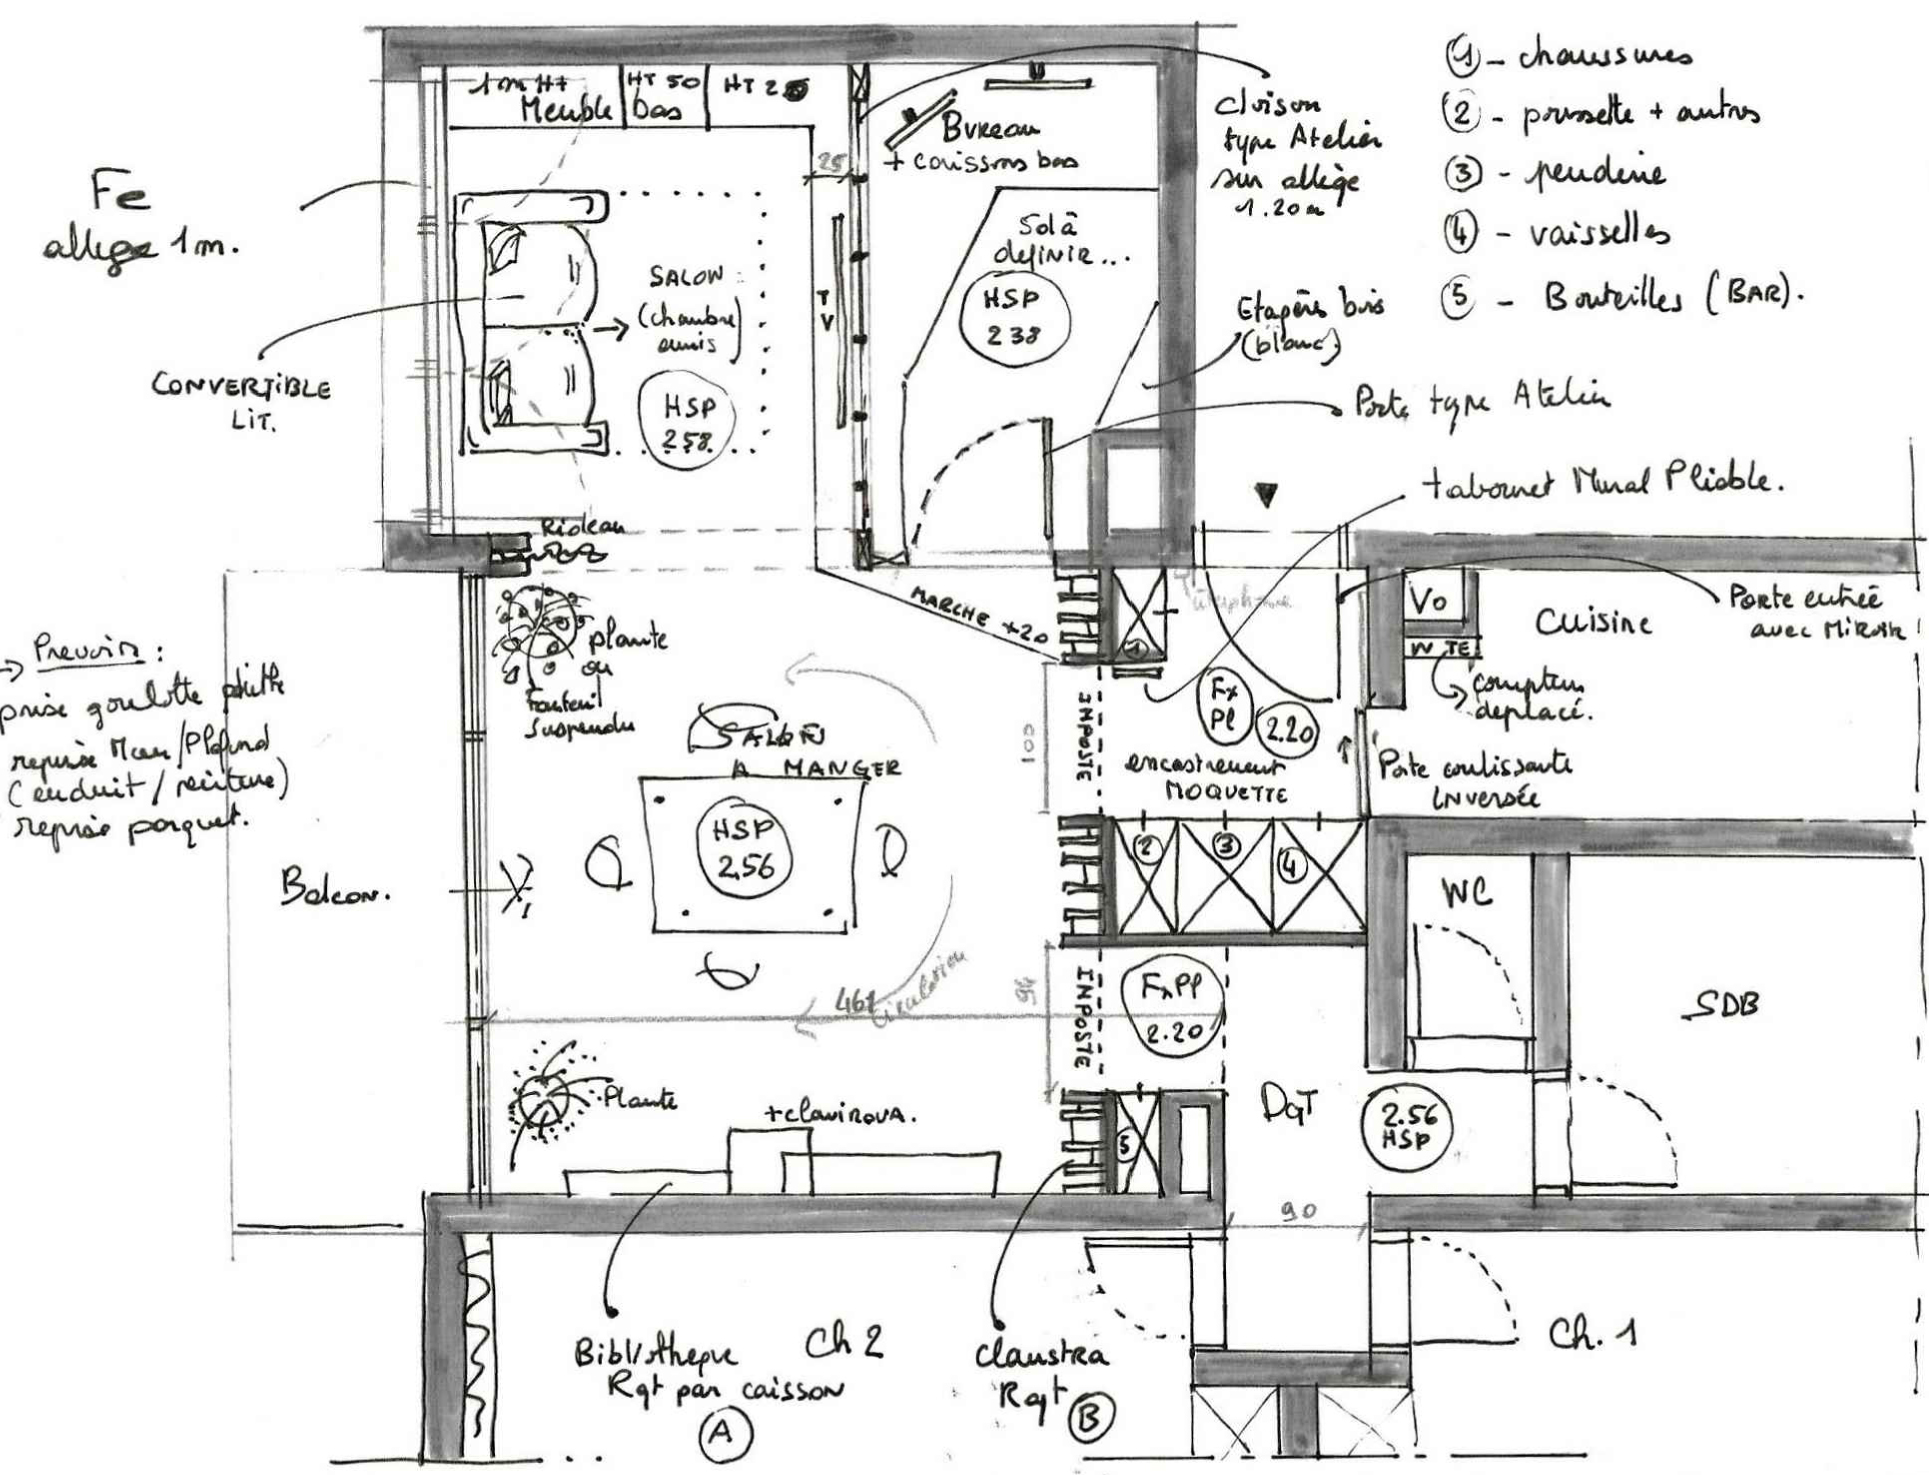 1m Ht
Meuble bas
HT 50
HT 20
Fe
allege 1m.
CONVERTIBLE
LIT.
SALON
(chambre
amis)
HSP
258
TV
25
Rideau
Bureau
+ caissons bas
Sol à
definir...
HSP
238
Cloison
type Atelier
sur allège
1.20m
1 - chaussures
2 - poussette + autres
3 - penderie
4 - vaisselles
5 - Bouteilles (BAR).
Etagères bois
(blanc)
Porte type Atelier
tabouret Mural Pliable.
MARCHE +20
1
Vo
W TE
Cuisine
Porte entrée
avec Miroir
compteur
déplacé.
→ Prevoir :
prise goulotte plinthe
reprise Mur/Plafond
(enduit / peinture)
reprise parquet.
plante
ou
Fauteuil
suspendu
SALON
A MANGER
HSP
2.56
100
IMPOSTE
Fx
Pl
2.20
encastrement
MOQUETTE
Porte coulissante
INVERSÉE
2
3
4
Balcon.
WC
SDB
461
circulation
94
IMPOSTE
FxPl
2.20
Plante
+clavinova.
5
DGT
2.56
HSP
90
Bibliotheque
Rgt par caisson
A
Ch 2
Claustra
Rgt B
Ch. 1